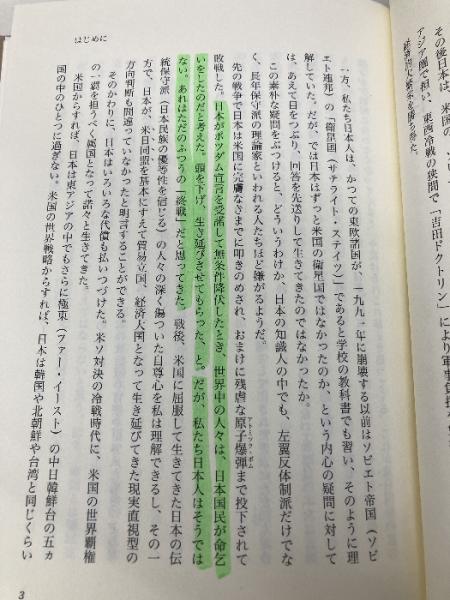 その後日本は、米国の
アジア圏で担い、東西冷戦の狭間で「吉田ドクトリン」により軍事負担を
経済大繁栄を勝ち得た。
はじめに
一方、私たち日本人は、かつての東欧諸国が、一九九一年に崩壊する以前はソビエト帝国(ソビ
エト連邦)の「衛星国(サテライト・ステイツ)」であると学校の教科書でも習い、そのように理
解していた。だが、では日本はずっと米国の衛星国ではなかったのか、という内心の疑問に対して
は、あえて目をつぶり、回答を先送りして生きてきたのではなかったか。
この素朴な疑問をぶつけると、どういうわけか、日本の知識人の中でも、左翼反体制派だけでな
く、長年保守派の理論家といわれる人たちほど嫌がるようだ。
先の戦争で日本は米国に完膚なきまでに叩きのめされ、おまけに残虐な原子爆弾まで投下されて
敗戦した。日本がポツダム宣言を受諾して無条件降伏したとき、世界中の人々は、日本国民が命乞
いをしたのだと考えた。頭を下げ、生き延びさせてもらった、と。だが、私たち日本人はそうでは
ない。あれはただのふつうの「終戦」だと思ってきた。戦後、米国に屈服して生きてきた日本の伝
統保守派(日本民族の優等性を信じる)の人々の深く傷ついた自尊心を私は理解できるし、その一
方で、日本が、米日同盟を基本にすえて貿易立国、経済大国となって生き延びてきた現実直視型の
方向判断も間違っていなかったと明言することができる。
そのかわりに、日本はいろいろな代償も払いつづけた。米ソ対決の冷戦時代に、米国の世界覇権
の一翼を担うべく属国となって諾々と生きてきた。
米国からすれば、日本は東アジアの中でもさらに極東(ファー・イースト)の中日韓朝台の五ヵ
国の中のひとつに過ぎない。米国の世界戦略からすれば、日本は韓国や北朝鮮や台湾と同じくらい
3